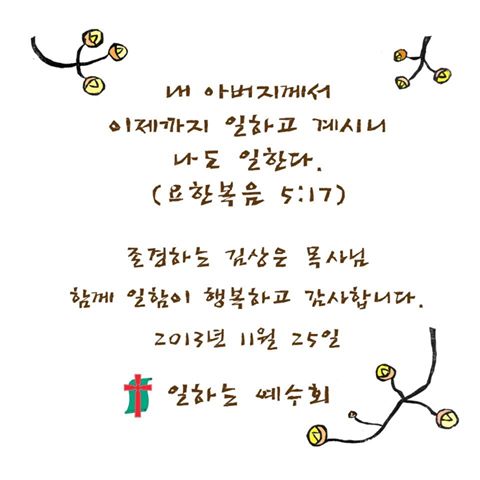 내 아버지께서
이제까지 일하고 계시니
나도 일한다.
(요한복음 5:17)
존경하는 김상은 목사님
함께 일함이 행복하고 감사합니다.
2013년 11월 25일
일하는 예수회